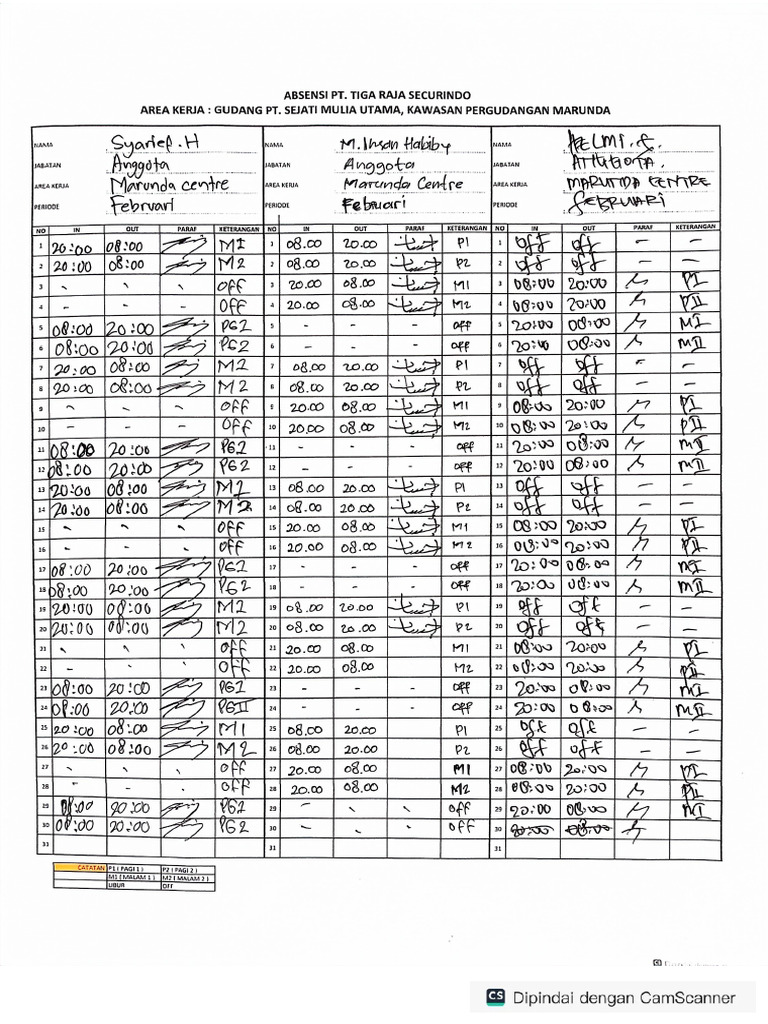 ABSENSI PT. TIGA RAJA SECURINDO
AREA KERJA : GUDANG PT. SEJATI MULIA UTAMA, KAWASAN PERGUDANGAN MARUNDA
NAMA Syarief.H NAMA M.Ihsan Habiby NAMA HELMI.
JABATAN Anggota JABATAN Anggota JABATAN ANGGOTA.
AREA KERJA Marunda centre AREA KERJA Marunda Centre AREA KERJA MARUNDA CENTRE
PERIODE Februari PERIODE Februari PERIODE FEBRUARI
NO IN OUT PARAF KETERANGAN NO IN OUT PARAF KETERANGAN NO IN OUT PARAF KETERANGAN
1 20:00 08:00 M1 1 08.00 20.00 P1 1 Off Off - -
2 20:00 08:00 M2 2 08.00 20.00 P2 2 Off Off - -
3 - - - OFF 3 20.00 08.00 M1 3 08:00 20:00 PI
4 - - - OFF 4 20.00 08.00 M2 4 08:00 20:00 PII
5 08:00 20:00 PG2 5 - - - off 5 20:00 08:00 MI
6 08:00 20:00 PG2 6 - - - off 6 20:00 08:00 MII
7 20:00 08:00 M2 7 08.00 20.00 P1 7 Off Off - -
8 20:00 08:00 M2 8 08.00 20.00 P2 8 Off Off - -
9 - - - OFF 9 20.00 08.00 M1 9 08:00 20:00 PI
10 - - - OFF 10 20.00 08.00 M2 10 08:00 20:00 PII
11 08:00 20:00 PG2 11 - - - off 11 20:00 08:00 MII
12 08:00 20:00 PG2 12 - - - off 12 20:00 08:00 MII
13 20:00 08:00 M1 13 08.00 20.00 P1 13 Off Off - -
14 20:00 08:00 M2 14 08.00 20.00 P2 14 Off Off - -
15 - - - OFF 15 20.00 08.00 M1 15 08:00 20:00 PI
16 - - - OFF 16 20.00 08.00 M2 16 08:00 20:00 PII
17 08:00 20:00 PG2 17 - - - off 17 20:00 08:00 MI
18 08:00 20:00 PG2 18 - - - off 18 20:00 08:00 MII
19 20:00 08:00 M2 19 08.00 20.00 P1 19 Off Off - -
20 20:00 08:00 M2 20 08.00 20.00 P2 20 Off Off - -
21 - - - OFF 21 20.00 08.00 M1 21 08:00 20:00 PI
22 - - - OFF 22 20.00 08.00 M2 22 08:00 20:00 PII
23 08:00 20:00 PG1 23 - - - off 23 20:00 08:00 MI
24 08:00 20:00 PGII 24 - - - off 24 20:00 08:00 MII
25 20:00 08:00 M1 25 08.00 20.00 P1 25 Off Off - -
26 20:00 08:00 M2 26 08.00 20.00 P2 26 Off Off - -
27 - - - OFF 27 20.00 08.00 M1 27 08:00 20:00 PI
28 - - - OFF 28 20.00 08.00 M2 28 08:00 20:00 PII
29 08:00 20:00 PG2 29 - - - OFF 29 20:00 08:00 MI
30 08:00 20:00 PG2 30 - - - OFF 30 20:00 08:00
31 31 31
CATATAN P1 ( PAGI 1 ) P2 ( PAGI 2 )
M1 ( MALAM 1 ) M2 ( MALAM 2 )
LIBUR OFF
CS Dipindai dengan CamScanner